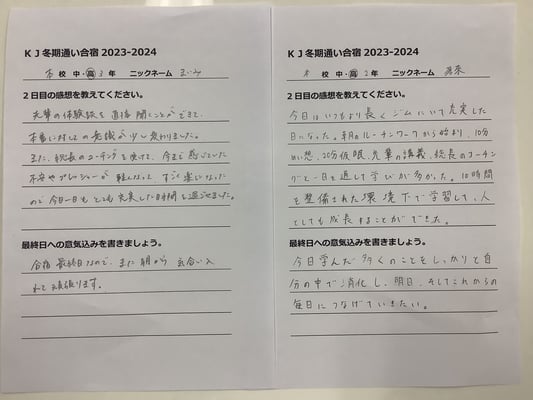 KJ冬期通い合宿 2023-2024
本 校 中・高 3 年 ニックネーム まいみ
2日目の感想を教えてください。
先輩の体験談を直接聞くことができて、
本番に対しての意識が少し変わりました。
また、総長のコーチングを受けて、今まで感じていた
不安やプレッシャーが軽くなって、すごく楽になった
ので今日一日もとても充実した時間を過ごせました。
最終日への意気込みを書きましょう。
合宿最終日なので、また朝から気合い入
れて頑張ります。
KJ冬期通い合宿 2023-2024
校 中・高 2 年 ニックネーム
2日目の感想を教えてください。
今日はいつもより長くジムにいて充実した
日になった。朝のルーチンワークから始まり、10分
めい想、20分仮眠、先輩の講義、総長のコーチン
グと一日を通して学びが多かった。10時間
を整備された環境下で学習して、人
としても成長することができた。
最終日への意気込みを書きましょう。
今日学んだ多くのことをしっかりと自
分の中で消化し、明日、そしてこれからの
毎日につなげていきたい。